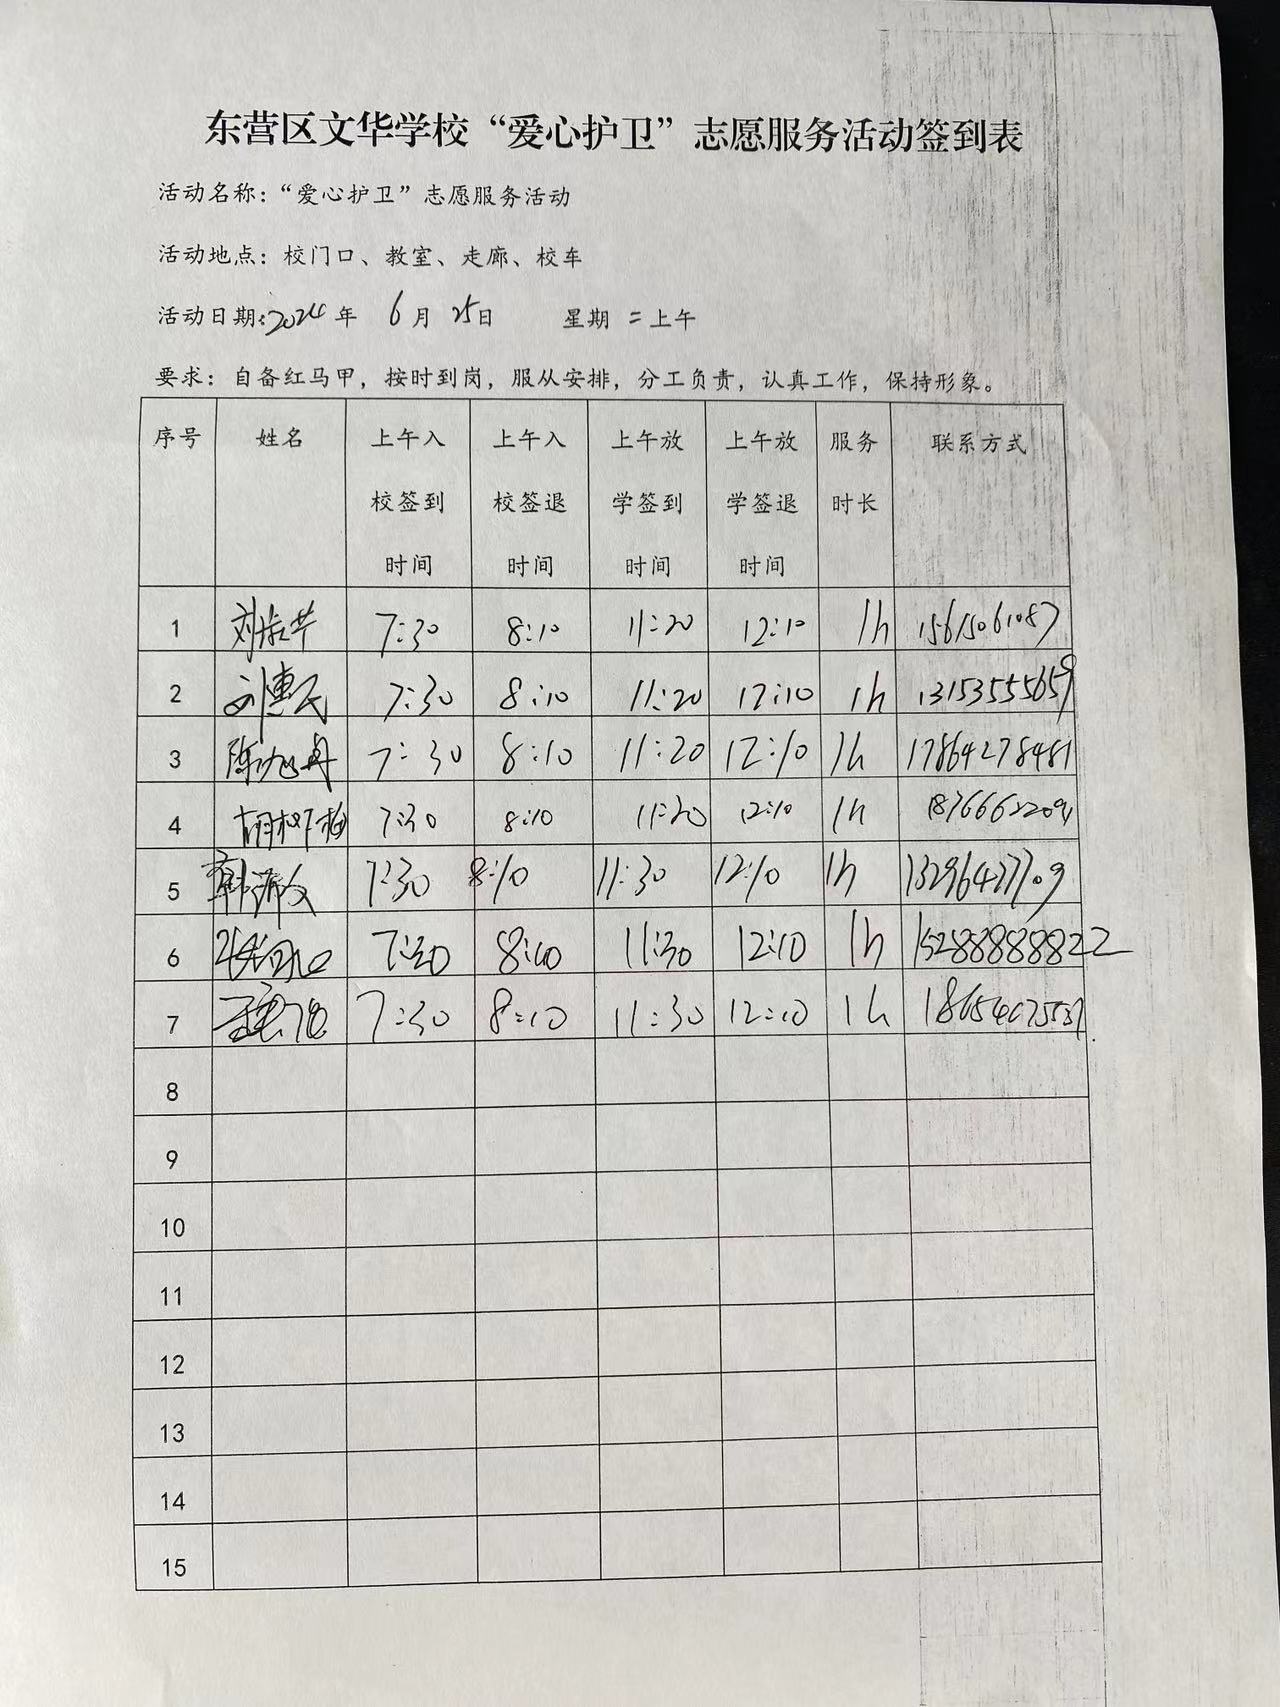 东营区文华学校“爱心护卫”志愿服务活动签到表
活动名称：“爱心护卫”志愿服务活动
活动地点：校门口、教室、走廊、校车
活动日期：2024年 6月 25日 星期二上午
要求：自备红马甲，按时到岗，服从安排，分工负责，认真工作，保持形象。
序号 姓名 上午入校签到时间 上午入校签退时间 上午放学签到时间 上午放学签退时间 服务时长 联系方式
1 7:30 8:10 11:20 12:10 1h 15615061087
2 刘惠民 7:30 8:10 11:20 12:10 1h 13153555659
3 7:30 8:10 11:20 12:10 1h 17864278481
4 7:30 8:10 11:30 12:10 1h
5 7:30 8:10 11:30 12:10 1h 13296427709
6 7:30 8:10 11:30 12:10 1h 15288888822
7 7:30 8:10 11:30 12:10 1h
8
9
10
11
12
13
14
15